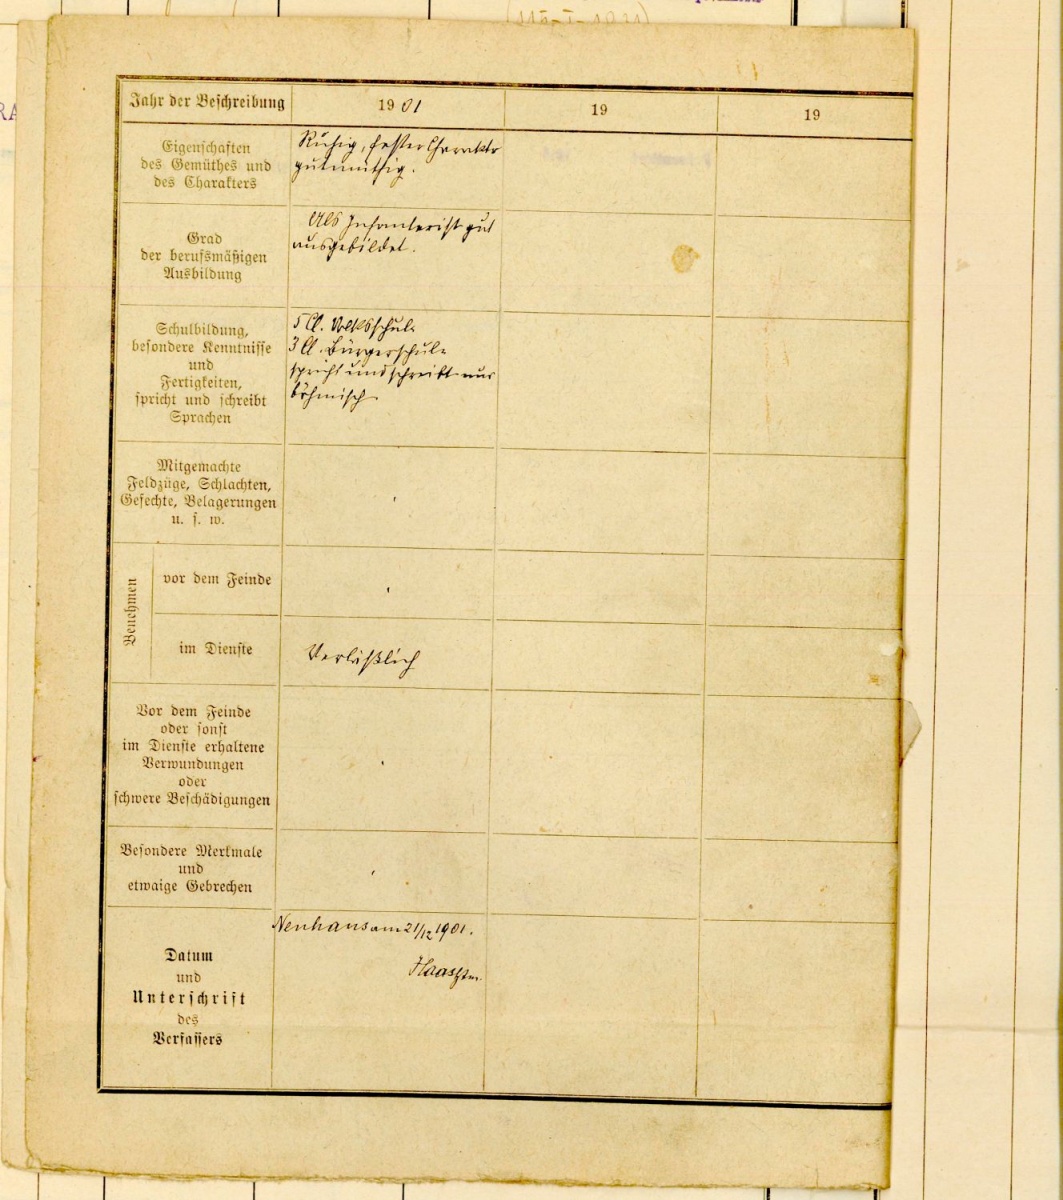 Jahr der Beschreibung
1901
19
19
Eigenschaften
des Gemüthes und
des Charakters
Ruhig, fester Charakter
gutmüthig.
Grad
der berufsmäßigen
Ausbildung
Als Infanterist gut
ausgebildet.
Schulbildung,
besondere Kenntnisse
und
Fertigkeiten,
spricht und schreibt
Sprachen
5 Cl. Volksschule
3 Cl. Bürgerschule
spricht und schreibt nur
böhmisch
Mitgemachte
Feldzüge, Schlachten,
Gefechte, Belagerungen
u. s. w.
Benehmen
vor dem Feinde
im Dienste
Verläßlich
Vor dem Feinde
oder sonst
im Dienste erhaltene
Verwundungen
oder
schwere Beschädigungen
Besondere Merkmale
und
etwaige Gebrechen
Datum
und
Unterschrift
des
Verfassers
Neuhaus am 21/12 1901.
Haas